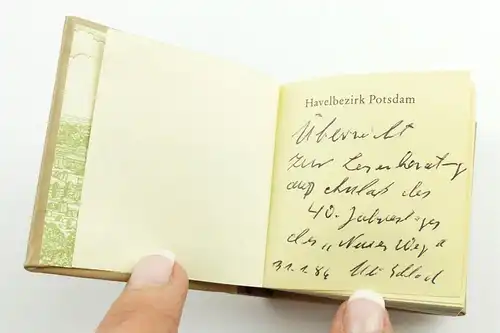 Havelbezirk Potsdam
Überreicht
zur Leserberatung
auf Anlaß des
40. Jahrestages
des „Neuer Weg“
31.1.86